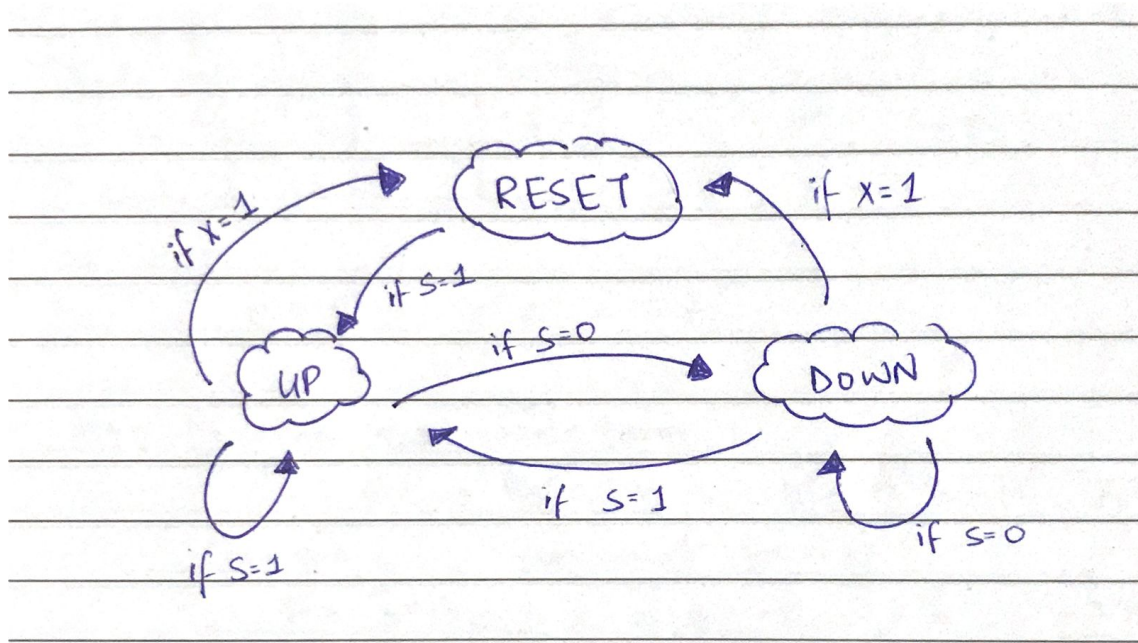 RESET
if x=1
if x=1
if S=1
if S=0
UP
DOWN
if S=1
if S=0
if S=1